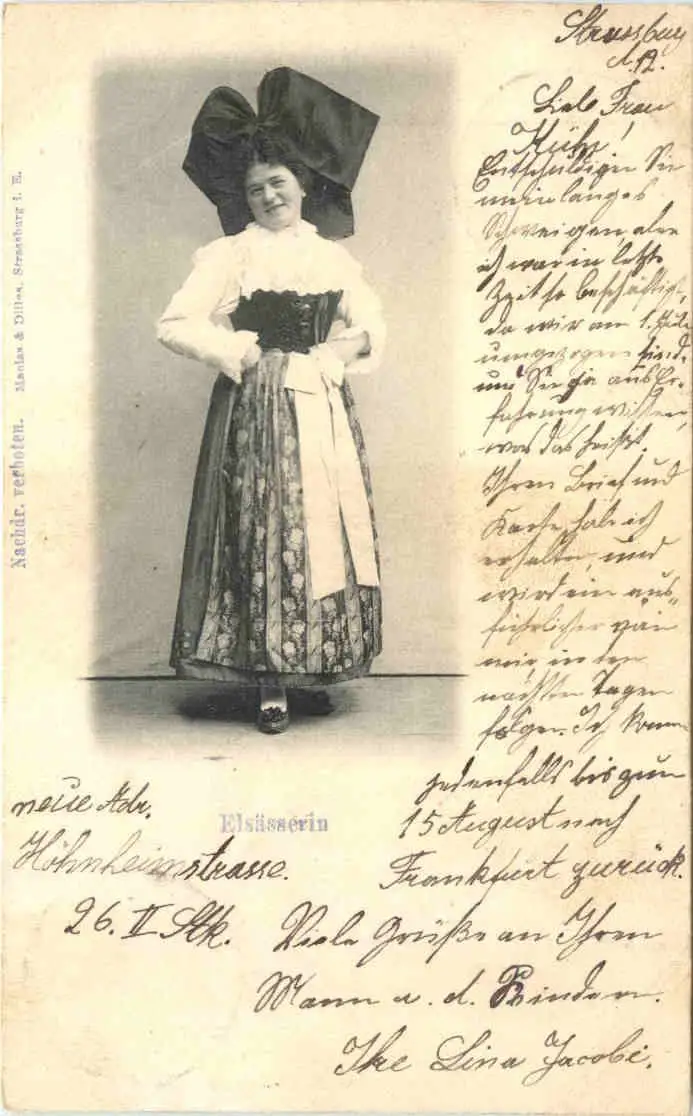 Strassburg
d. 12.
Liebe Frau
Kühn!
Entschuldigen Sie
mein langes
Schweigen, aber
ich war in letzt.
Zeit so beschäftigt,
da wir am 1. Juli
umgezogen sind.
und Sie ja aus Er-
fahrung wissen,
was das heißt.
Ihren Brief und
Karte habe ich
erhalten, und
wird ein aus-
führlicher von
mir, in den
nächsten Tagen
folgen. Ich komme
jedenfalls bis zum
15 August nach
Frankfurt zurück.
Viele Grüße an Ihren
Mann u. d. Kindern.
Ihre Lina Jacobi.
neue Adr.
Höhnheimstrasse.
26. II Stk.
Elsässerin
Nachdr. verboten. Manias & Strassburg i. E.